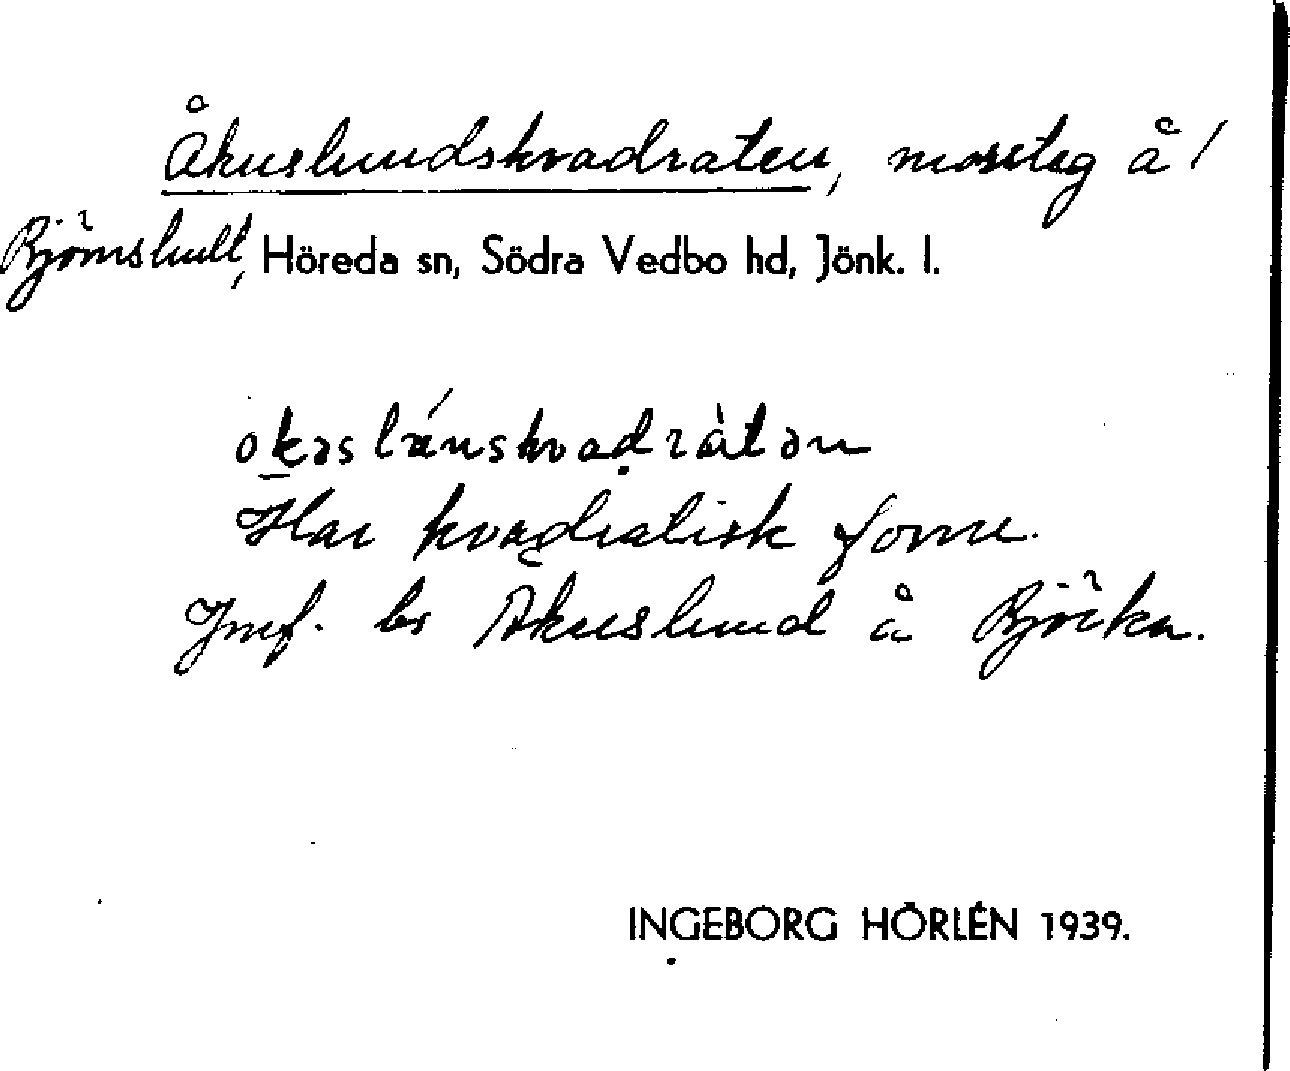 Åkuslundskvadraten, mosetag å /
Björnshult, Höreda sn, Södra Vedbo hd, Jönk. l.
Har kvadratisk form.
Jmf. bs Åkuslund å Björka.
INGEBORG HÖRLÉN 1939.